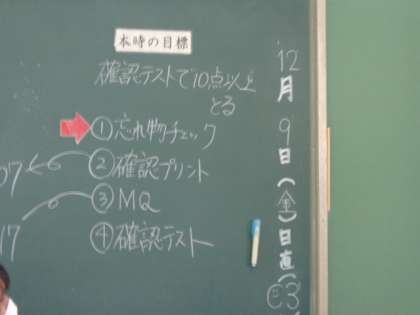 本時の目標
確認テストで10点以上
とる
①忘れ物チェック
②確認プリント
③MQ
④確認テスト
07
17
12月9日(金)日直(